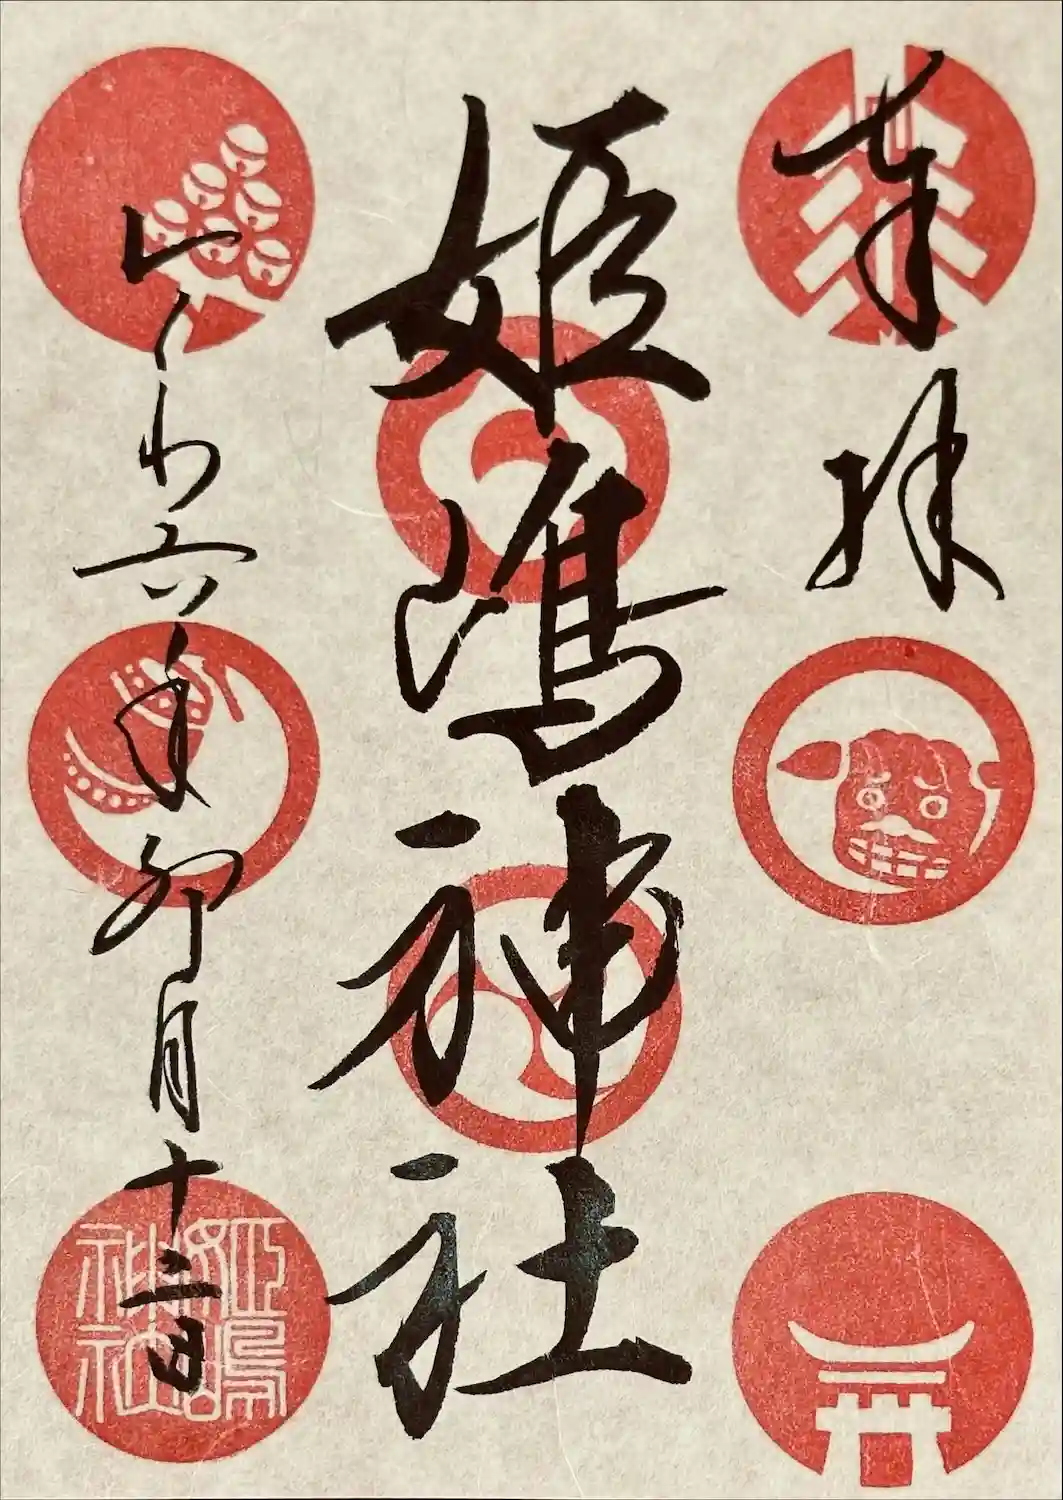 奉拝
姫嶋神社
令和六年卯月十二日
姫嶋
神社